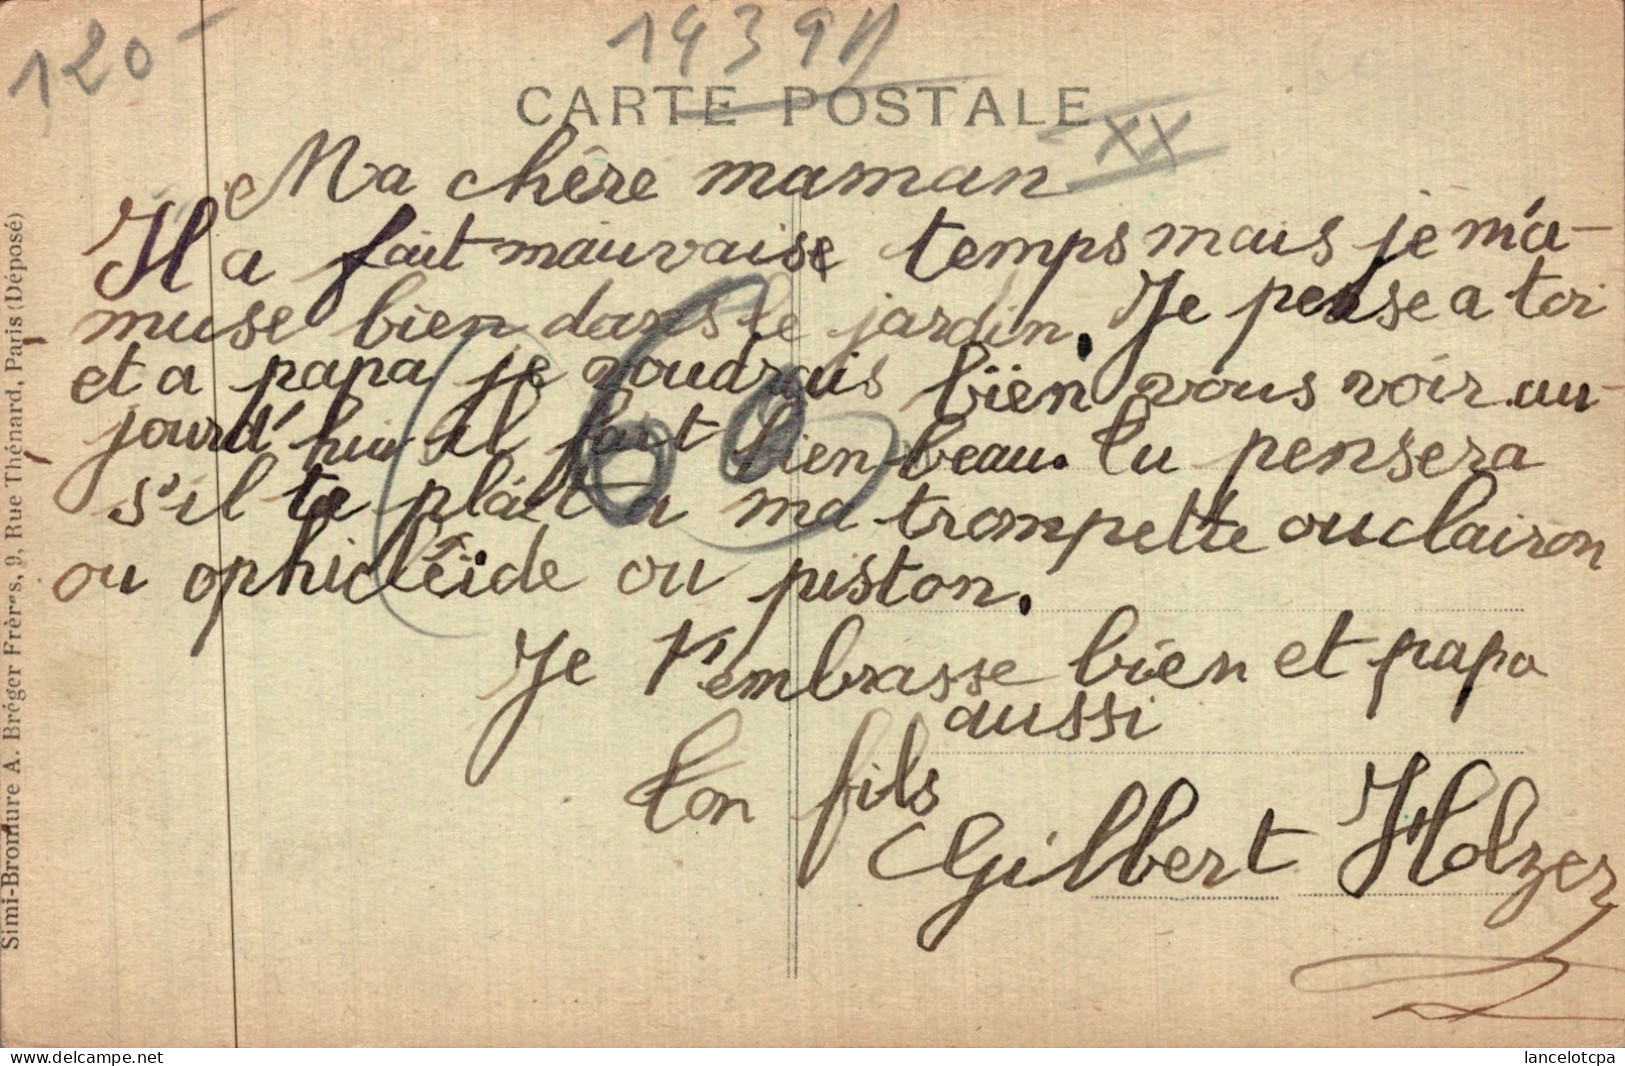 120-
1439N
CARTE POSTALE
XX
Ma chère maman
Il a fait mauvaise temps mais je m'a-
muse bien dans le jardin. Je pense a toi
et a papa je voudrais bien vous voir au-
jourd'hui il fait bien beau. Tu pensera
s'il te plaît a ma trompette ou clairon
ou ophicléïde ou piston.
Je t'embrasse bien et papa
aussi
ton fils
Gilbert Holzer
60
Simi-Bromure A. Bréger Frères, 9, Rue Thénard, Paris (Déposé)
www.delcampe.net
lancelotcpa